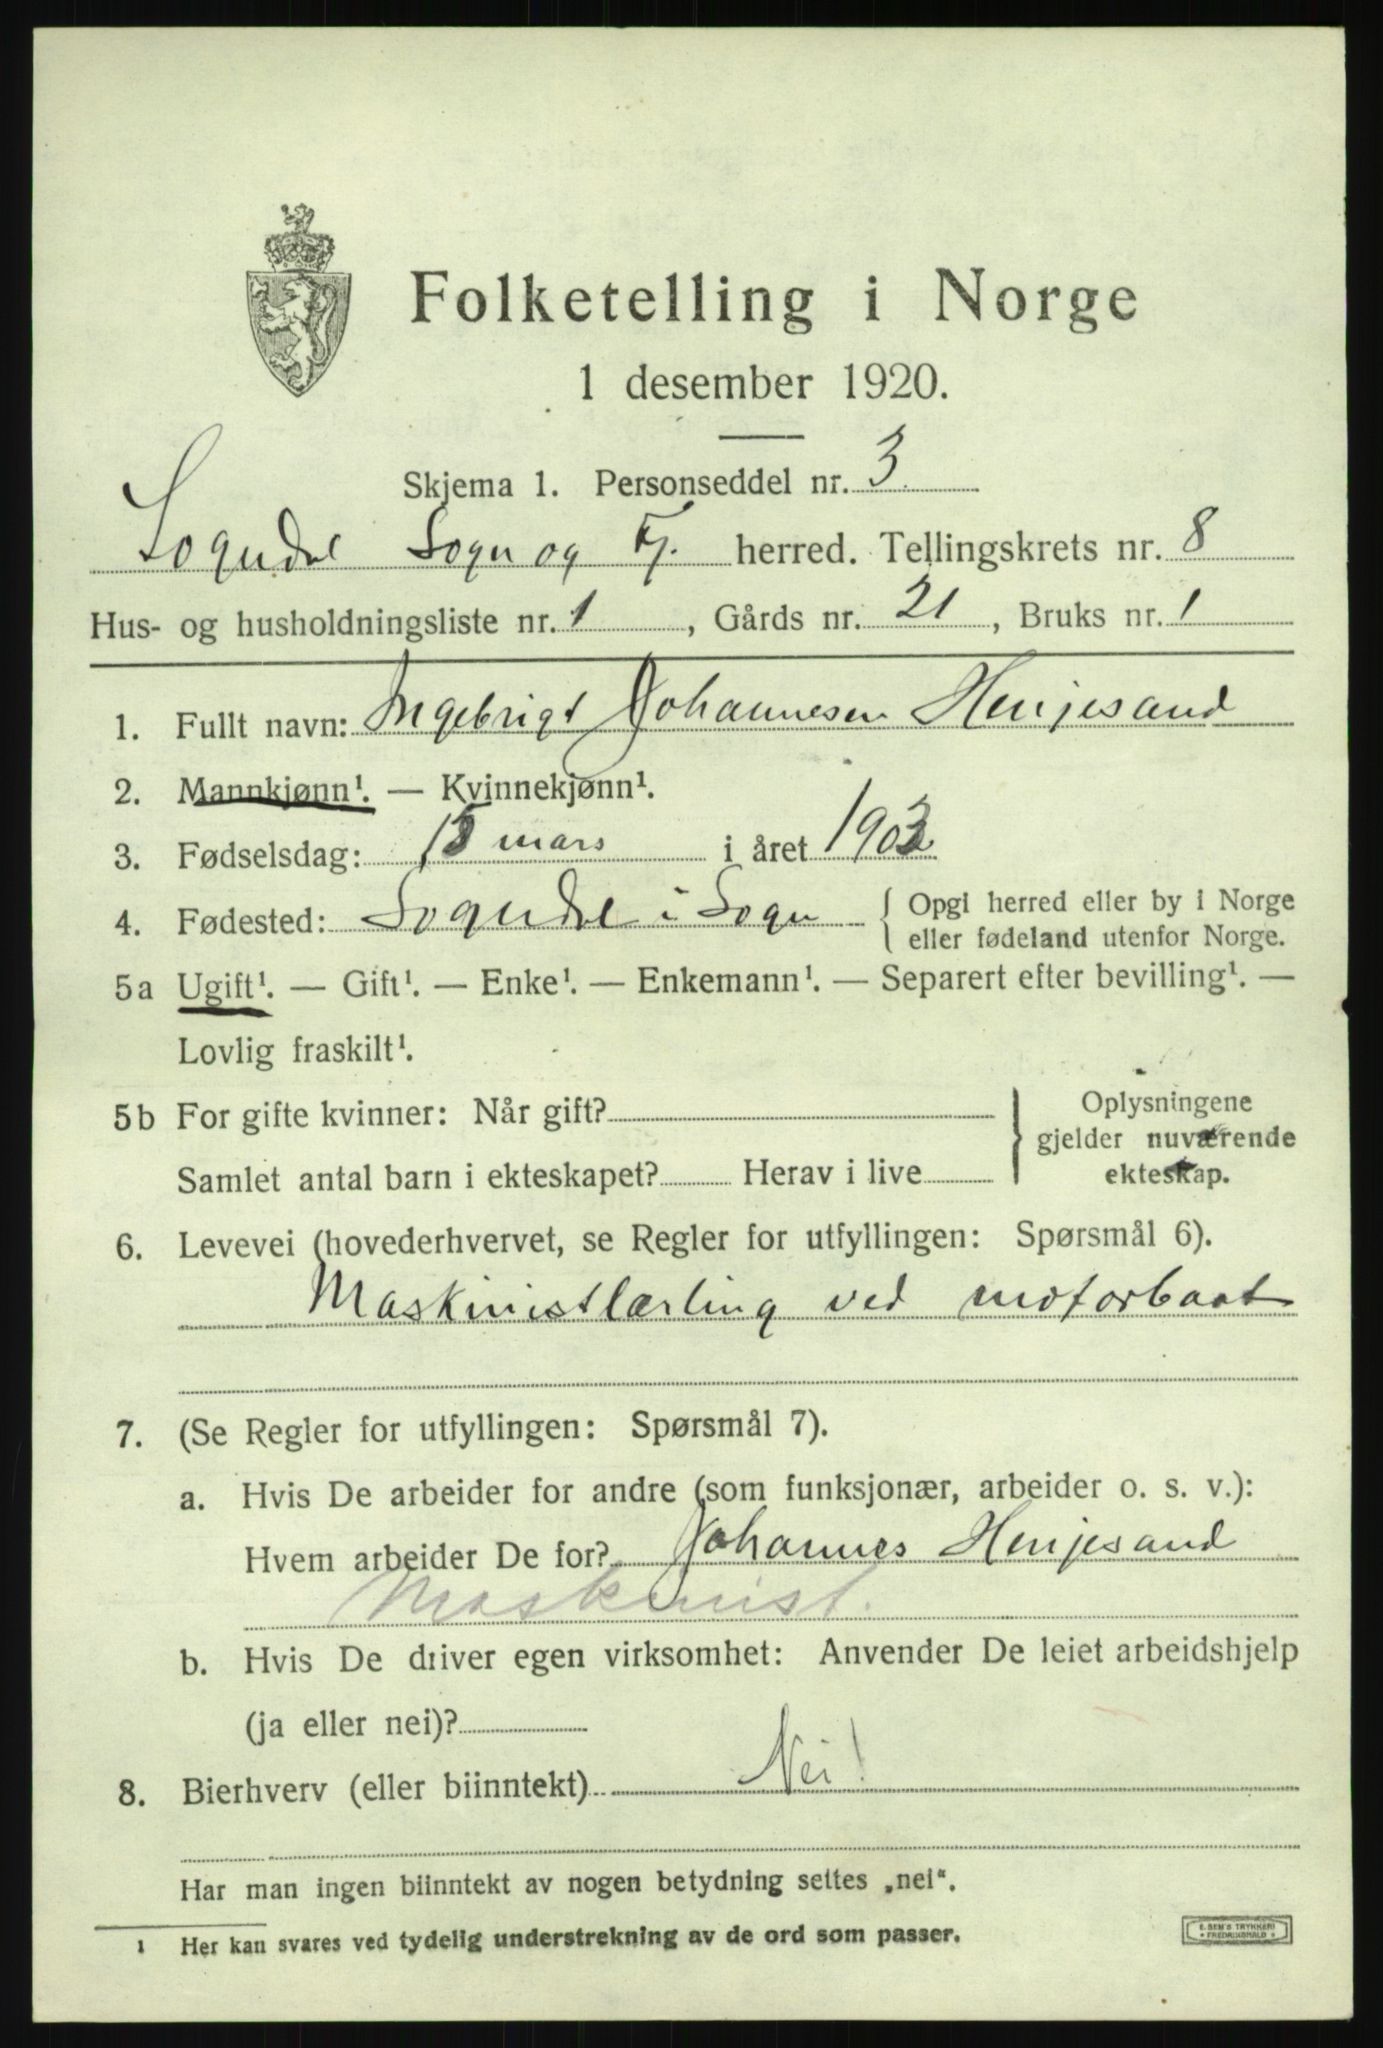 Folketelling i Norge
1 desember 1920.
Skjema 1. Personseddel nr. 3
Sogndal Sogn og Fj. herred. Tellingskrets nr. 8
Hus- og husholdningsliste nr. 1, Gårds nr. 21, Bruks nr. 1
1. Fullt navn: Ingebrigt Johannesen Henjesand
2. Mannkjønn¹. — Kvinnekjønn¹.
3. Fødselsdag: 15 mars i året 1903
4. Fødested: Sogndal i Sogn { Opgi herred eller by i Norge
eller fødeland utenfor Norge.
5a Ugift¹. — Gift¹. — Enke¹. — Enkemann¹. — Separert efter bevilling¹. —
Lovlig fraskilt¹.
5b For gifte kvinner: Når gift? } Oplysningene
gjelder nuværende
Samlet antal barn i ekteskapet? Herav i live ekteskap.
6. Levevei (hovederhvervet, se Regler for utfyllingen: Spørsmål 6).
Maskinistlærling ved motorbaat
7. (Se Regler for utfyllingen: Spørsmål 7).
a. Hvis De arbeider for andre (som funksjonær, arbeider o. s. v.):
Hvem arbeider De for? Johannes Henjesand
Maskinist.
b. Hvis De driver egen virksomhet: Anvender De leiet arbeidshjelp
(ja eller nei)?
8. Bierhverv (eller biinntekt) Nei!
Har man ingen biinntekt av nogen betydning settes „nei“.
¹ Her kan svares ved tydelig understrekning av de ord som passer.
E. SEM'S TRYKKERI
* FREDRIKSHALD *